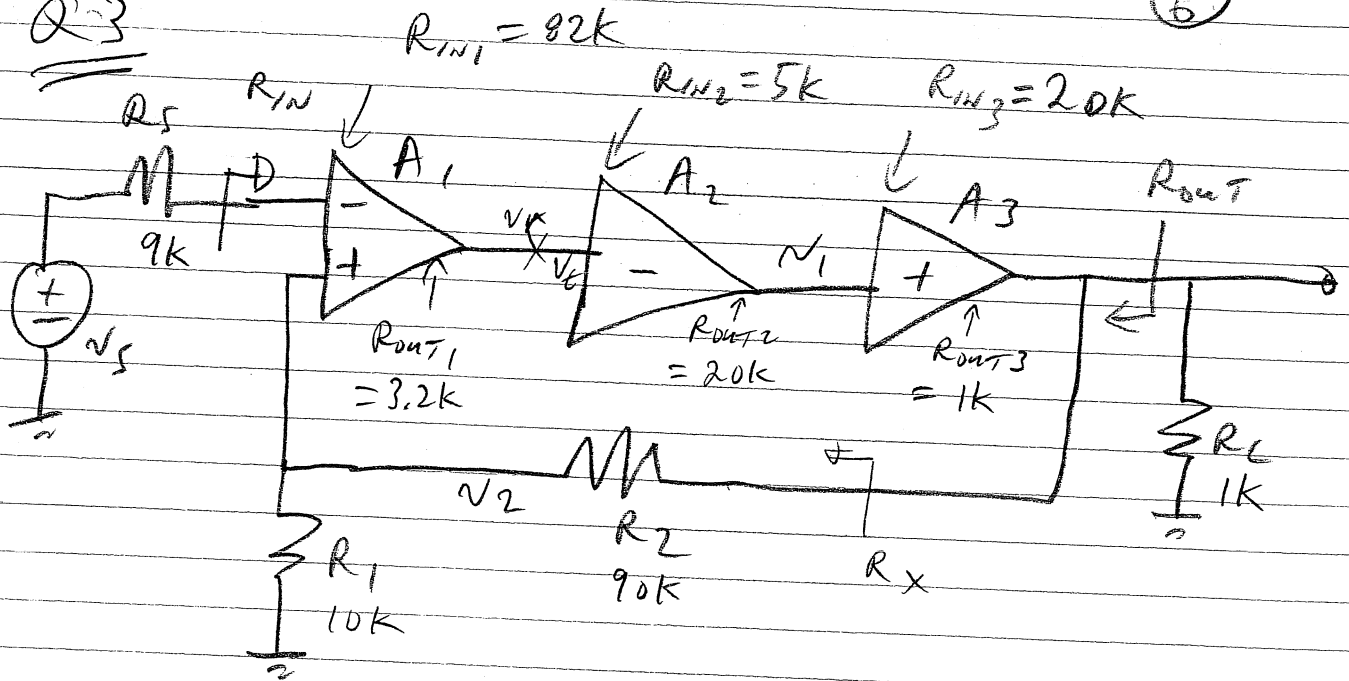 Q-3
6
RIN1 = 82K
RIN2 = 5K RIN3 = 20K
RS RIN A1 A2 A3 ROUT
9K - + Vr Vt - N1 +
+ - NS
ROUT1 = 3.2K
ROUT2 = 20K
ROUT3 = 1K
RL 1K
N2 R2 90K RX
R1 10K